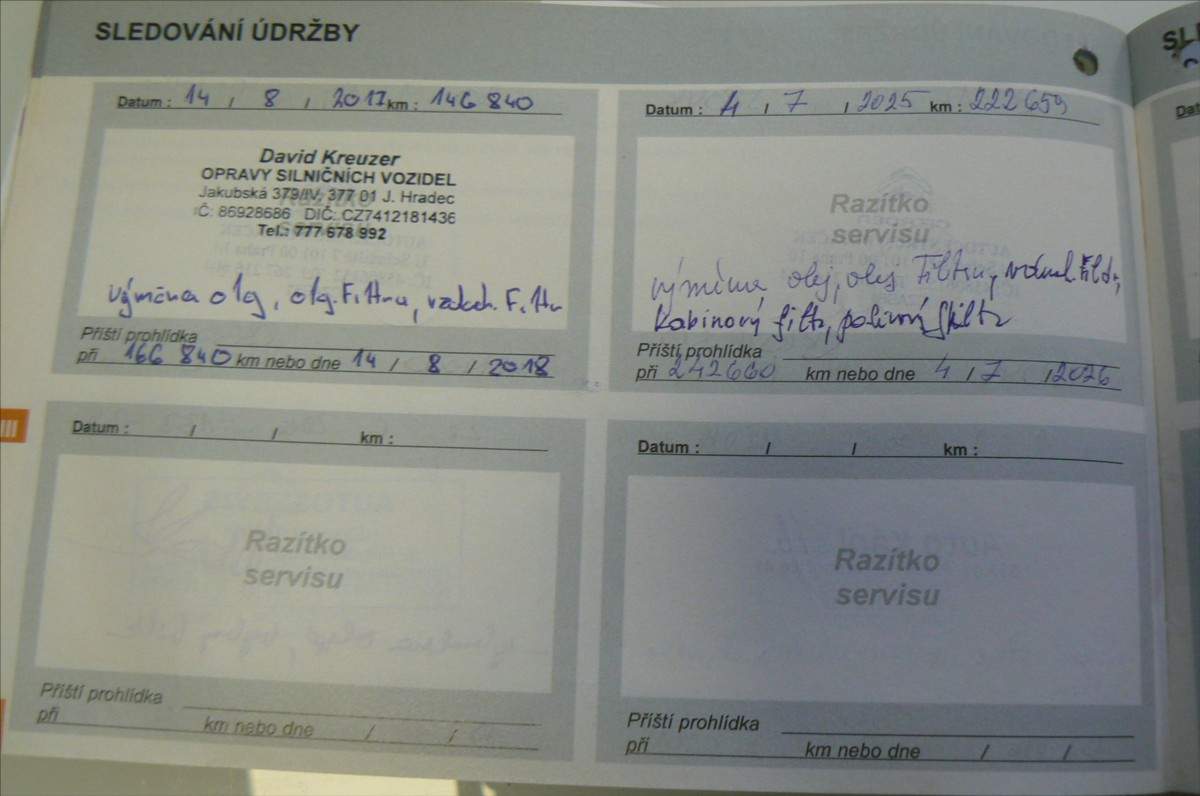 SLEDOVÁNÍ ÚDRŽBY
Datum : 14 / 8 / 2017 km : 146 840
David Kreuzer
OPRAVY SILNIČNÍCH VOZIDEL
Jakubská 379/IV, 377 01 J. Hradec
IČ: 86928686 DIČ: CZ7412181436
Tel.: 777 678 992
výměna olej, olej. Filtru, vzduch. Filtr
Příští prohlídka
při 166 840 km nebo dne 14 / 8 / 2018
Datum : 4 / 7 / 2025 km : 222 659
Razítko
servisu
výměna olej, olej Filtru, vzduch. Filtr,
Kabinový filtr, palivový filtr
Příští prohlídka
při 242660 km nebo dne 4 / 7 / 2026
Datum : / / km :
Razítko
servisu
Příští prohlídka
při km nebo dne / /
Datum : / / km :
Razítko
servisu
Příští prohlídka
při km nebo dne / /
SL
Dat